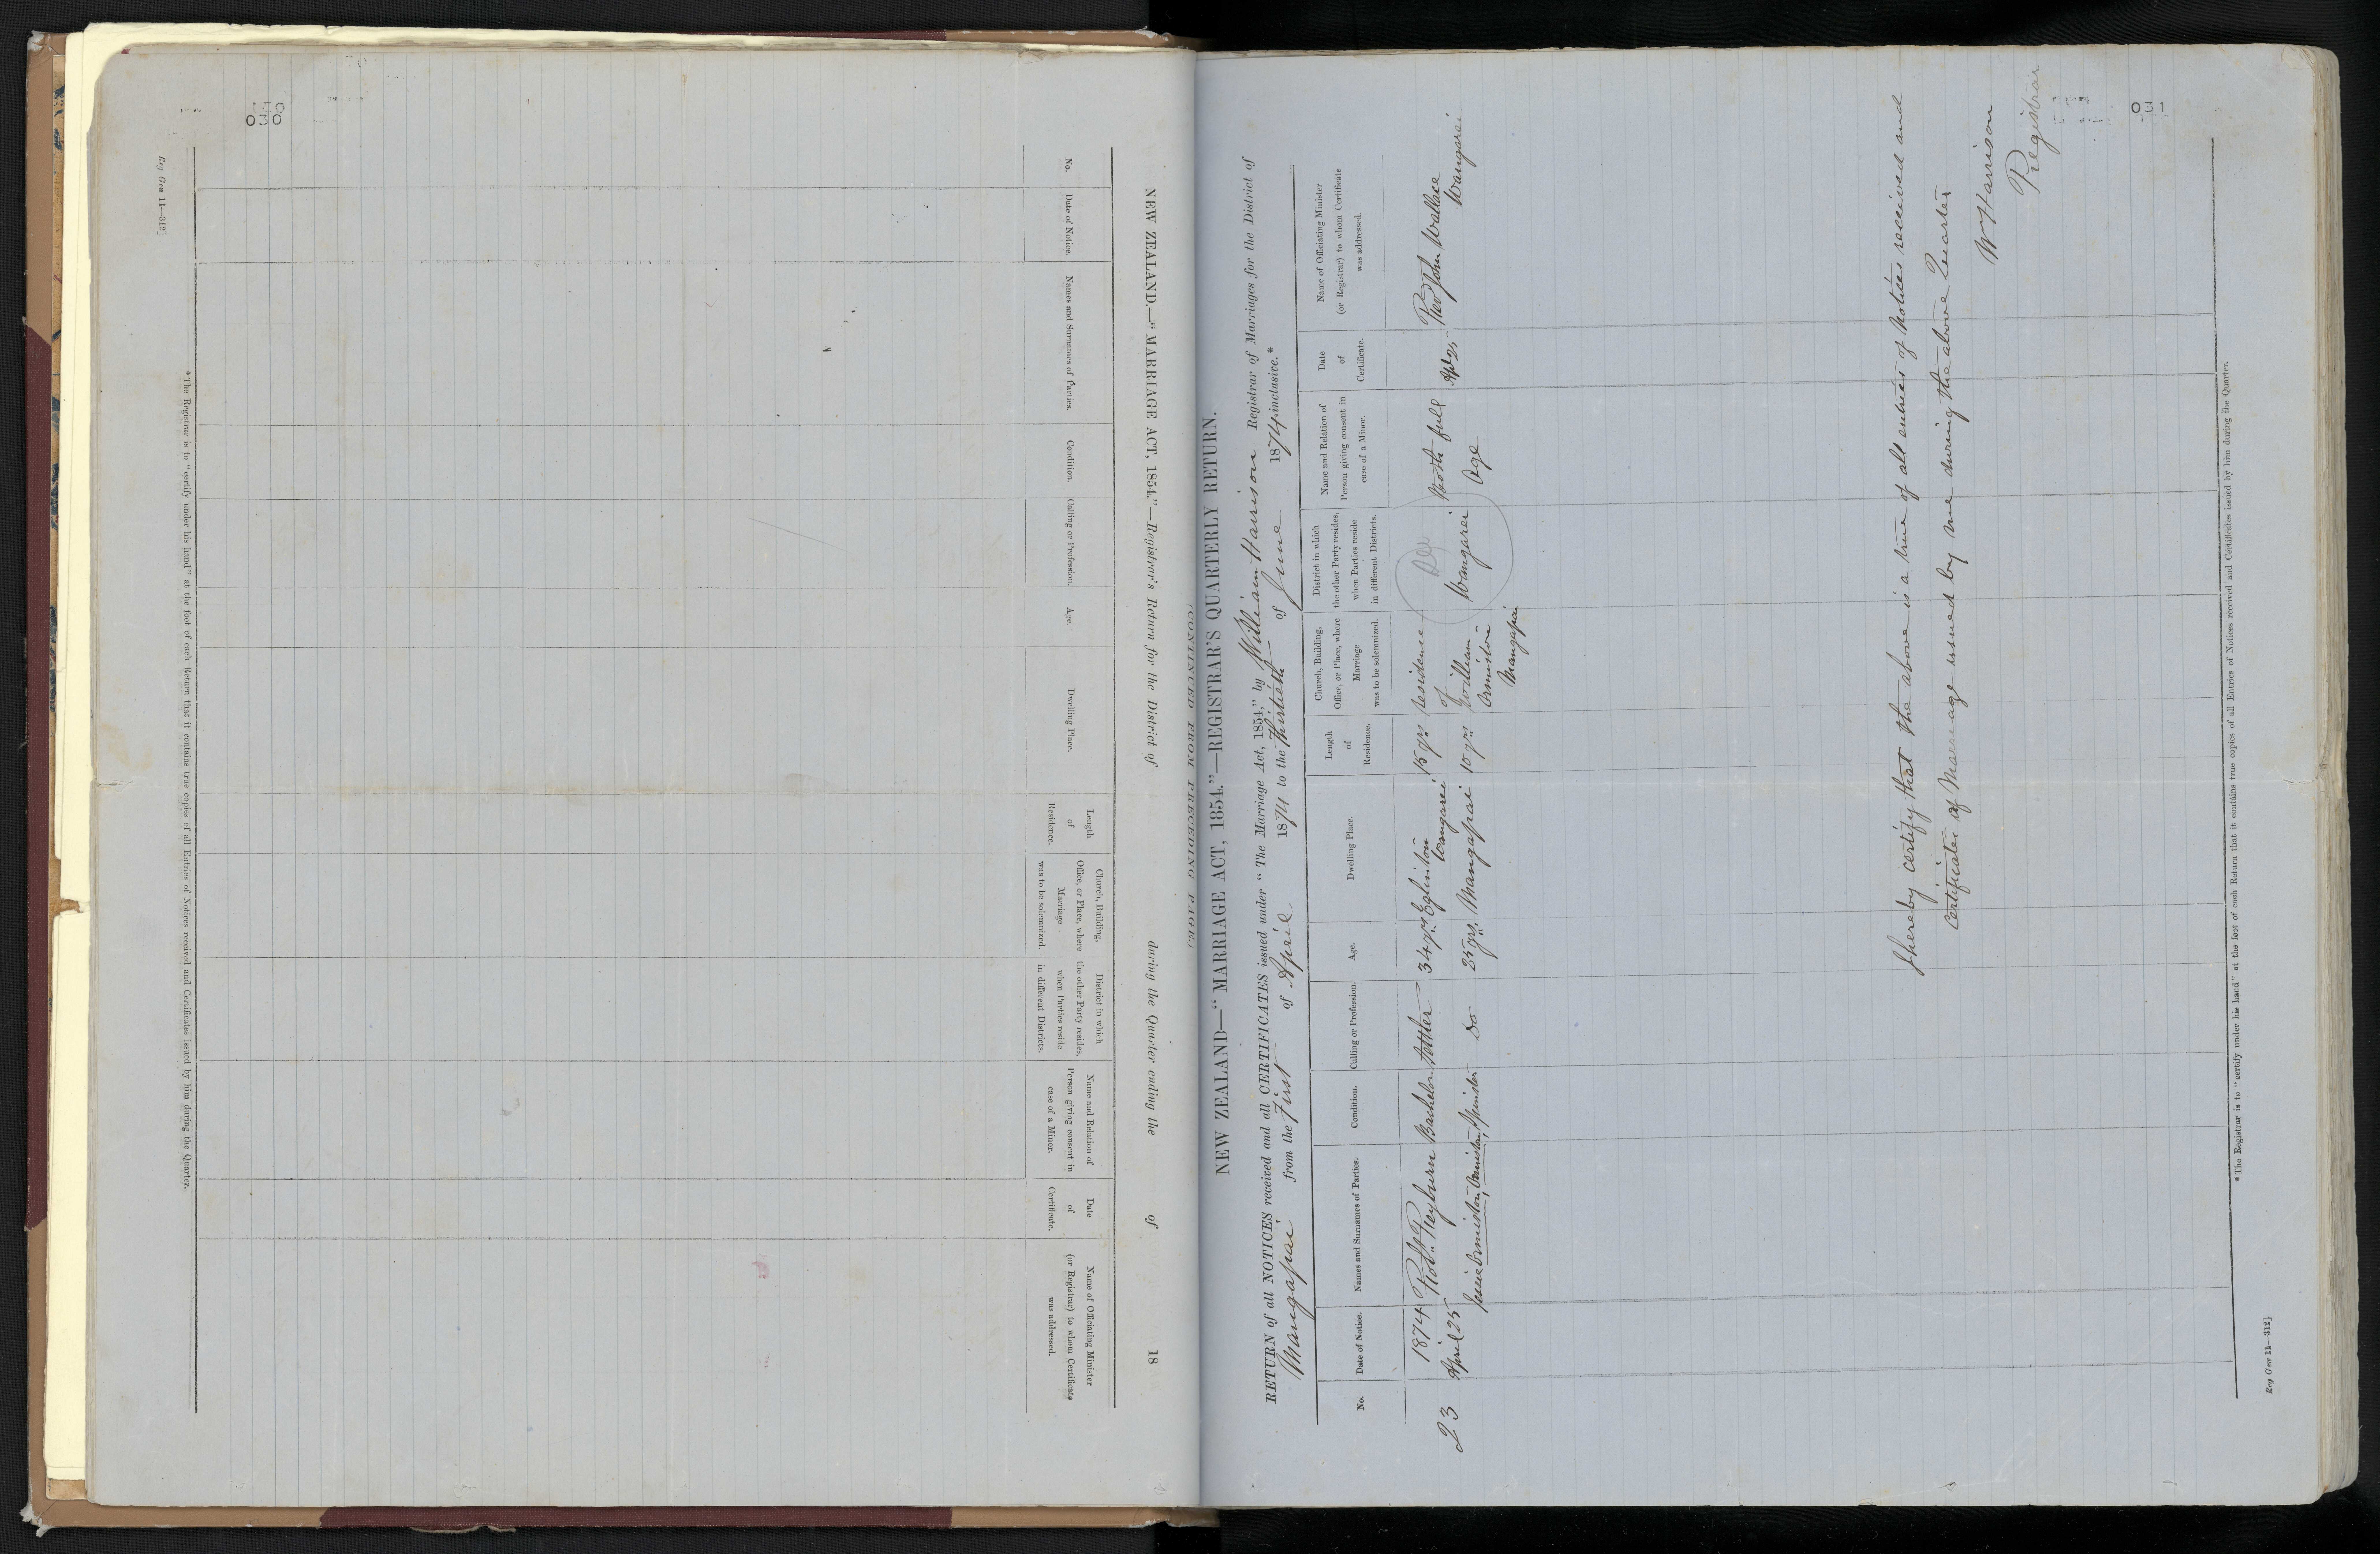 030
NEW ZEALAND.—"MARRIAGE ACT, 1854."—Registrar's Return for the District of during the Quarter ending the of 18
(CONTINUED FROM PRECEDING PAGE.)
No.
Date of Notice.
Names and Surnames of Parties.
Condition.
Calling or Profession
Age.
Dwelling Place.
Length
of
Residence.
Church, Building,
Office, or Place, where
Marriage
was to be solemnized.
District in which
the other Party resides,
when Parties reside
in different Districts.
Name and Relation of
Person giving consent in
case of a Minor.
Date
of
Certificate.
Name of Officiating Minister
(or Registrar) to whom Certificate
was addressed.
*The Registrar is to "certify under his hand" at the foot of each Return that it contains true copies of all Entries of Notices received and Certificates issued by him during the Quarter.
Reg Gen 11—312]
031
NEW ZEALAND—"MARRIAGE ACT, 1854."—REGISTRAR'S QUARTERLY RETURN.
RETURN of all NOTICES received and all CERTIFICATES issued under "The Marriage Act, 1854," by William Harrison Registrar of Marriages for the District of
Mangapai from the First of April 1874 to the Thirtieth of June 1874 inclusive.*
No.
Date of Notice.
Names and Surnames of Parties.
Condition.
Calling or Profession.
Age.
Dwelling Place.
Length
of
Residence.
Church, Building,
Office, or Place, where
Marriage
was to be solemnized.
District in which
the other Party resides,
when Parties reside
in different Districts.
Name and Relation of
Person giving consent in
case of a Minor.
Date
of
Certificate.
Name of Officiating Minister
(or Registrar) to whom Certificate
was addressed.
23
1874
April 25
Robt. Reyburn
Jessie Ormiston, Ormiston,
Bachelor
Spinster
Settler
Do
34 yrs
25 yrs.
Eglinton
Wangarei
Mangapai
15 yrs
10 yrs
residence
of
William
Ormiston
Mangapai
Wangarei
Both full
Age
Apl 25
Revd John Wallace
Wangarei
I hereby certify that the above is a true of all entries of Notices received and
Certificates of Marriage issued by me during the above Quarter
Wm Harrison
Registrar
*The Registrar is to "certify under his hand" at the foot of each Return that it contains true copies of all Entries of Notices received and Certificates issued by him during the Quarter.
Reg Gen 11—312]